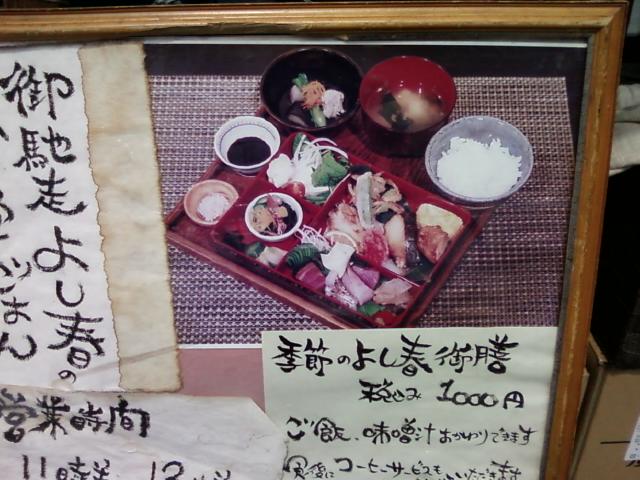 御馳走よし春の
ごはん
季節のよし春御膳
税込み 1000円
ご飯、味噌汁おかわりできます
食後にコーヒーサービスも
いただきます
営業時間
11時